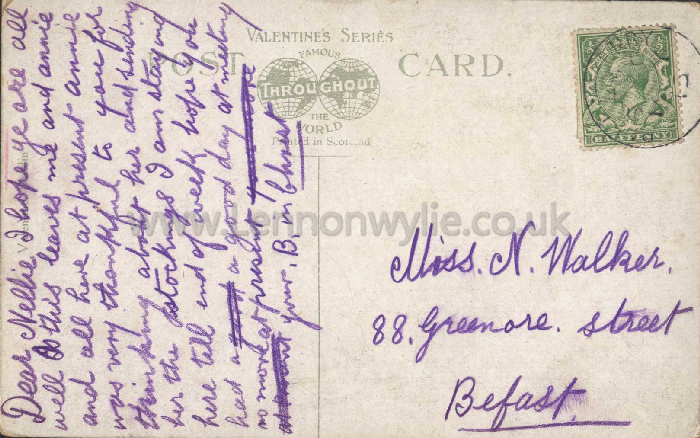 VALENTINE'S SERIES
FAMOUS
THROUGHOUT
THE
WORLD
Printed in Scotland
POST CARD.
Dear Nellie, I hope ye are all
well as this leaves me and annie
and all here at present annie
was very thankful to you for
thinking about her and sending
her the stockings I am staying
here tell end of week hope you
had a good day at meeting
no more at present
your. B. in Christ
Miss. N. Walker.
88. Greenore. Street
Befast.
www.Lennonwylie.co.uk